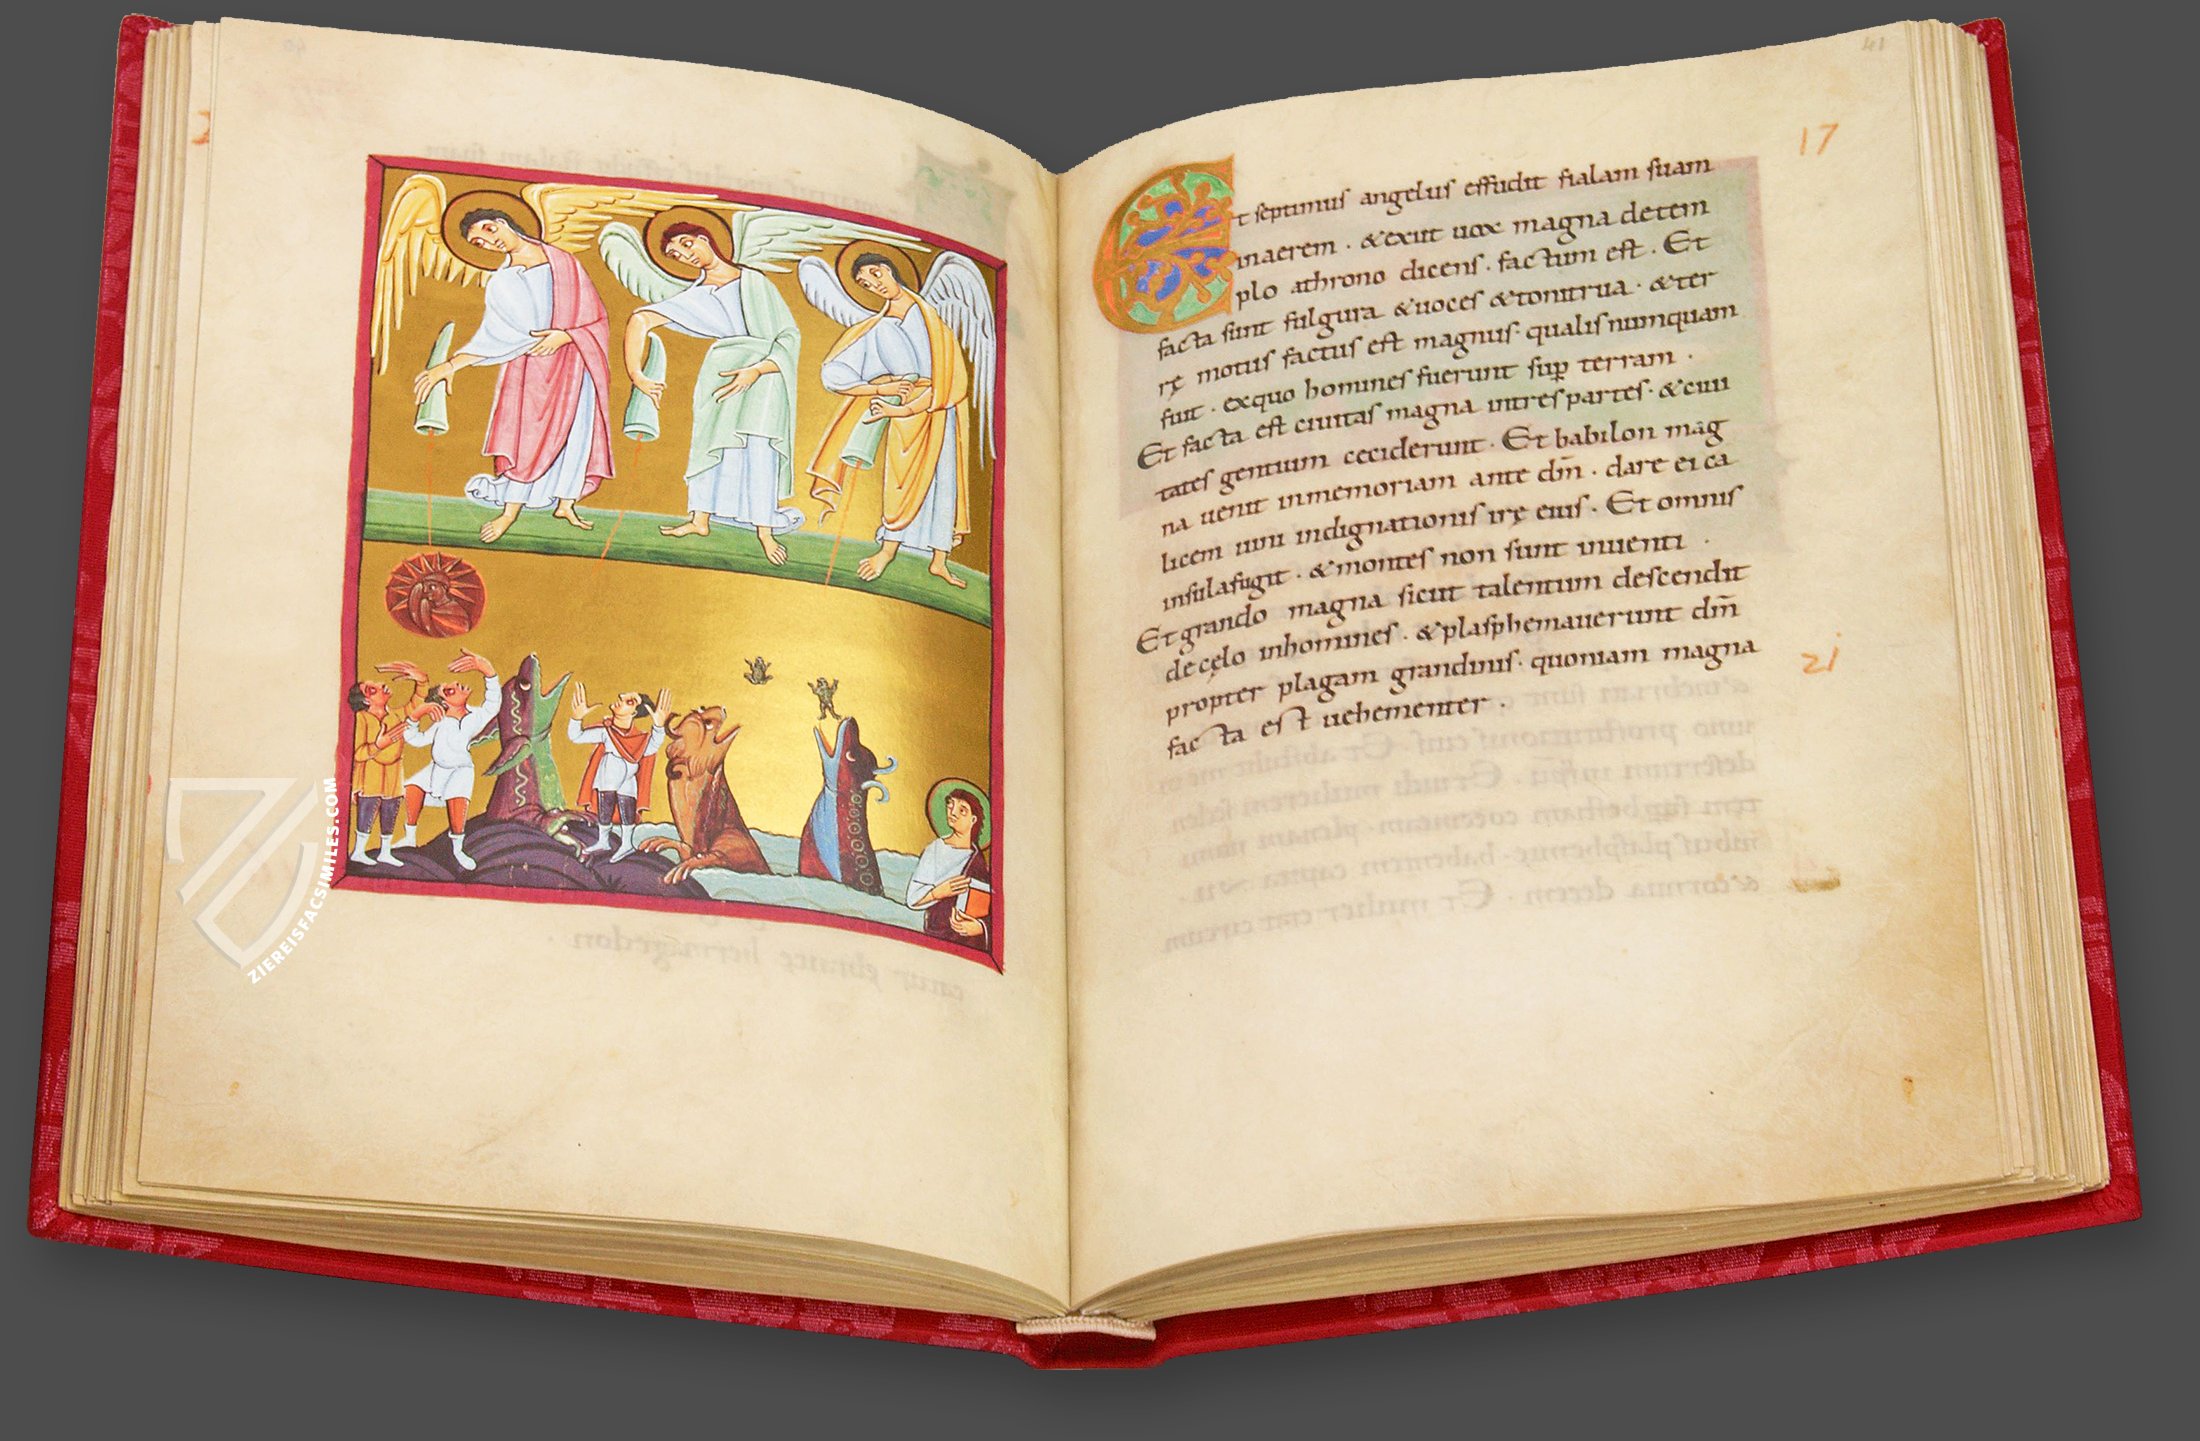 40
ZIEREISFACSIMILES.COM
41
17
Et septimus angelus effudit fialam suam
inaerem · &exiit uox magna detem
plo athrono dicens · factum est · Et
facta sunt fulgura &uoces &tonitrua · &ter
rę motus factus est magnus · qualis numquam
fuit · exquo homines fuerunt sup terram ·
Et facta est ciuitas magna intres partes · &ciui
tates gentium ceciderunt · Et babilon mag
na uenit inmemoriam ante dm̄ · dare ei ca
licem uini indignationis irę eius · Et omnis
insula fugit · &montes non sunt inuenti ·
Et grando magna sicut talentum descendit
decęlo inhomines · &plasphemauerunt dm̄
propter plagam grandinis · quoniam magna
21
facta est uehementer ·